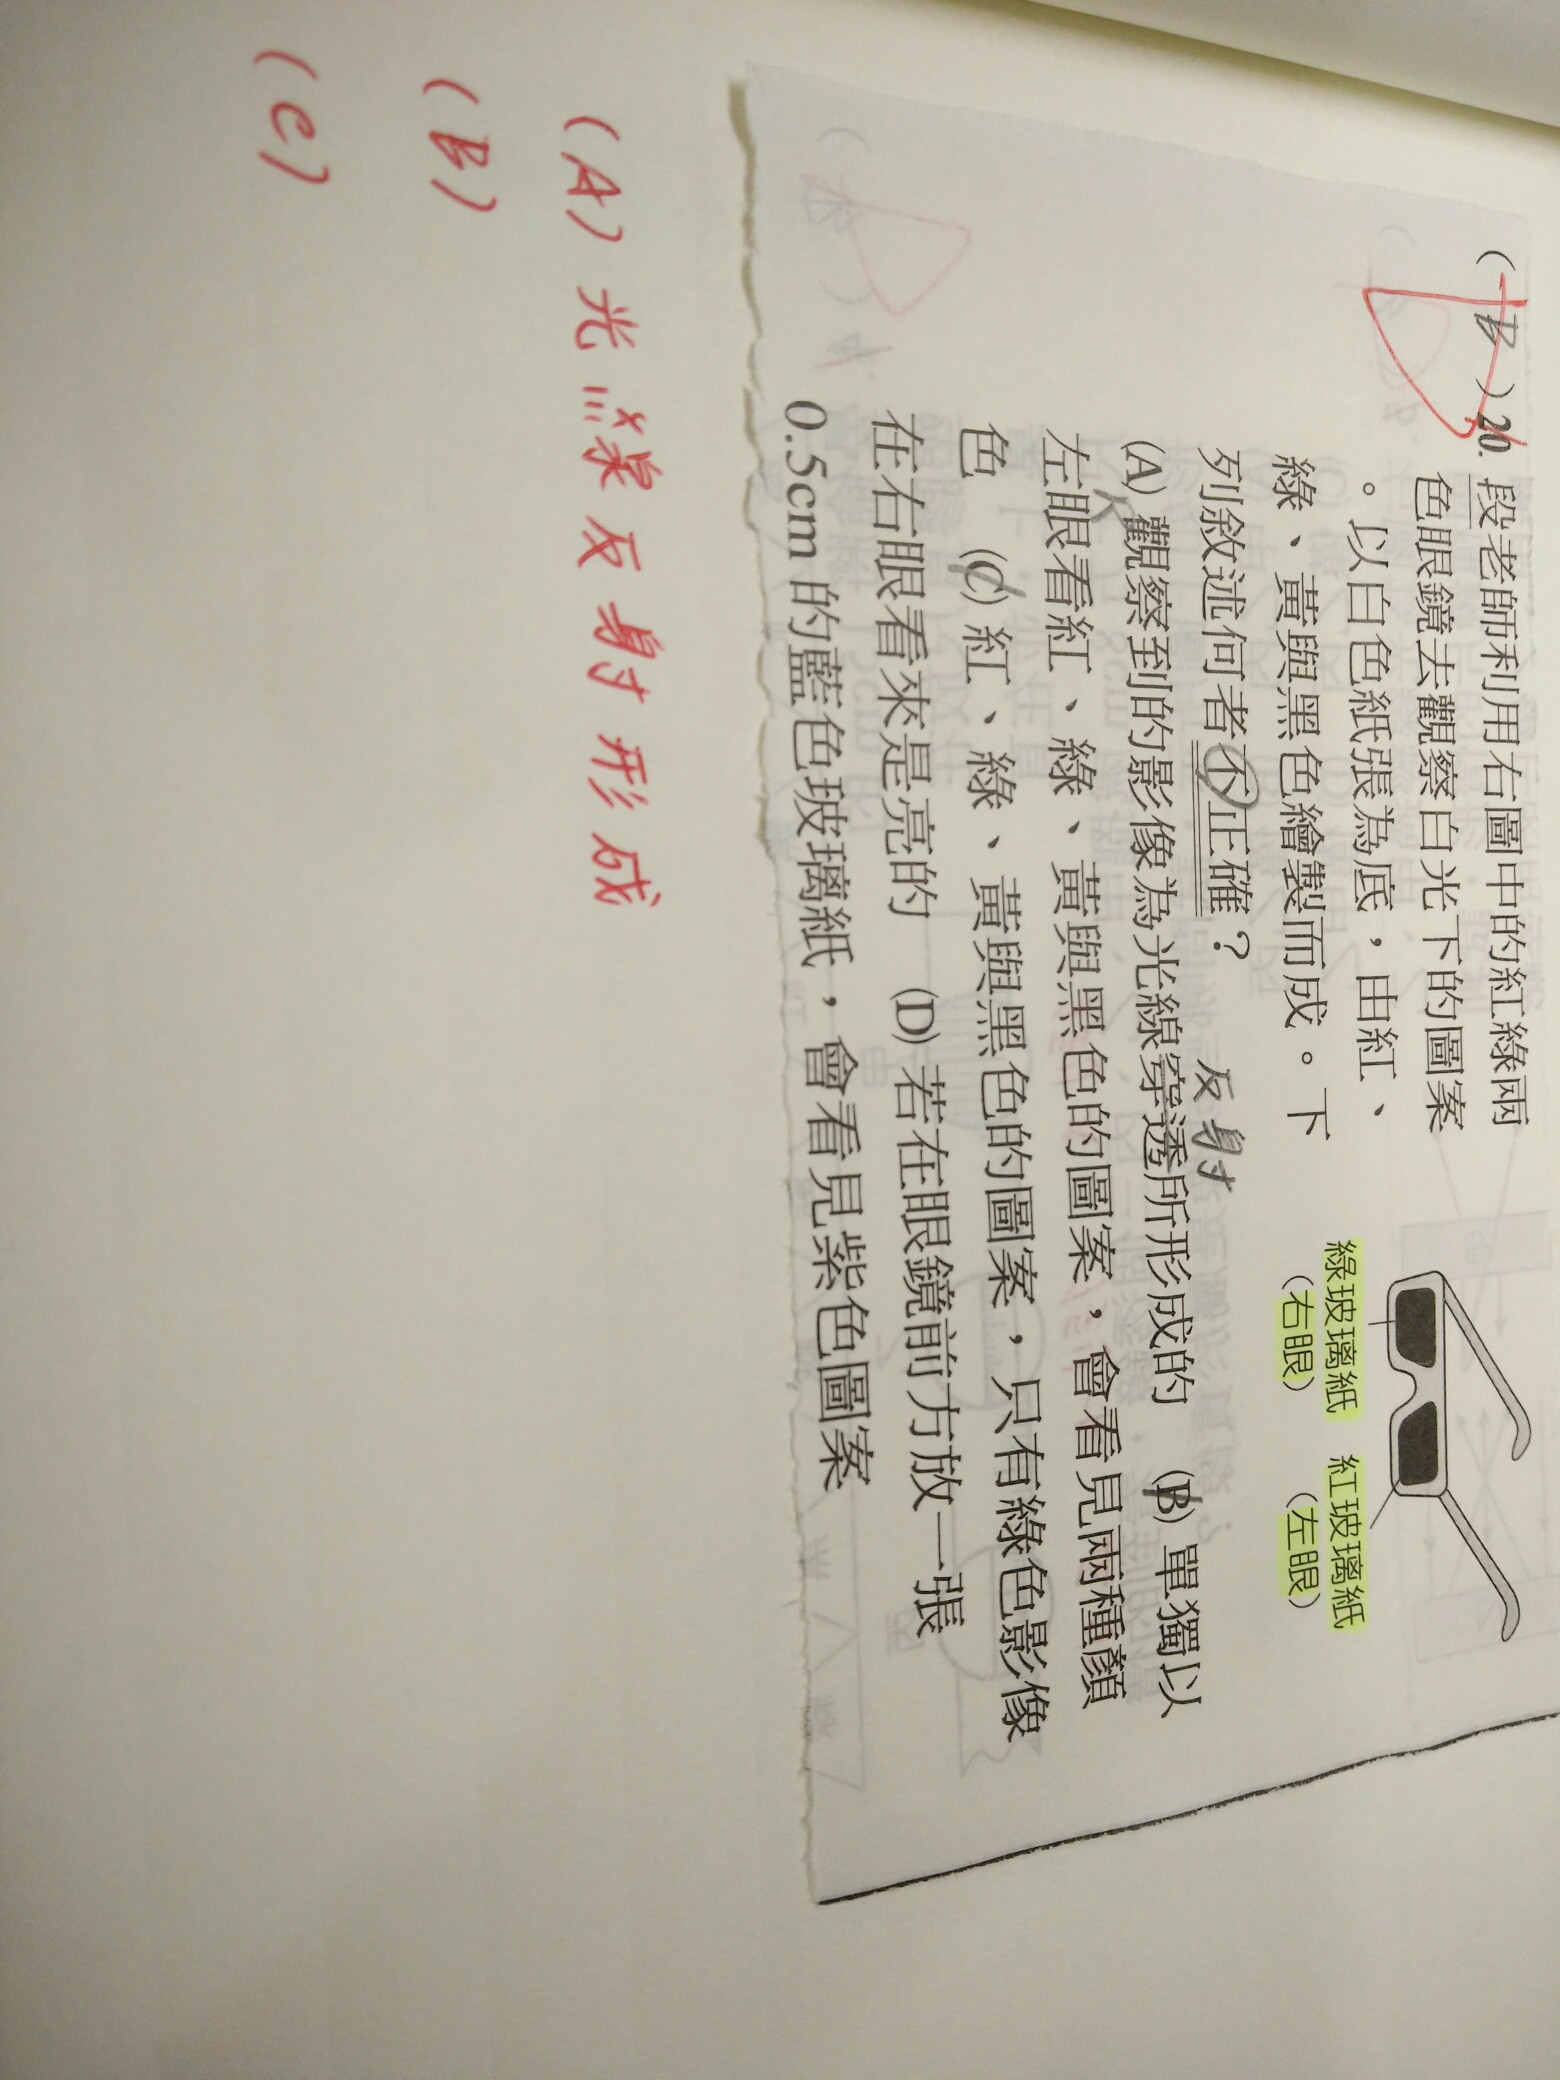 (B)20. 段老師利用右圖中的紅綠兩
色眼鏡去觀察白光下的圖案
。以白色紙張為底，由紅、
綠、黃與黑色繪製而成。下
列敘述何者不正確？
綠玻璃紙 紅玻璃紙
(右眼) (左眼)
反射
(A) 觀察到的影像為光線穿透所形成的 (B) 單獨以
左眼看紅、綠、黃與黑色的圖案，會看見兩種顏
色 (C) 紅、綠、黃與黑色的圖案，只有綠色影像
在右眼看來是亮的 (D) 若在眼鏡前方放一張
0.5cm 的藍色玻璃紙，會看見紫色圖案
(A) 光線反射形成
(B)
(C)